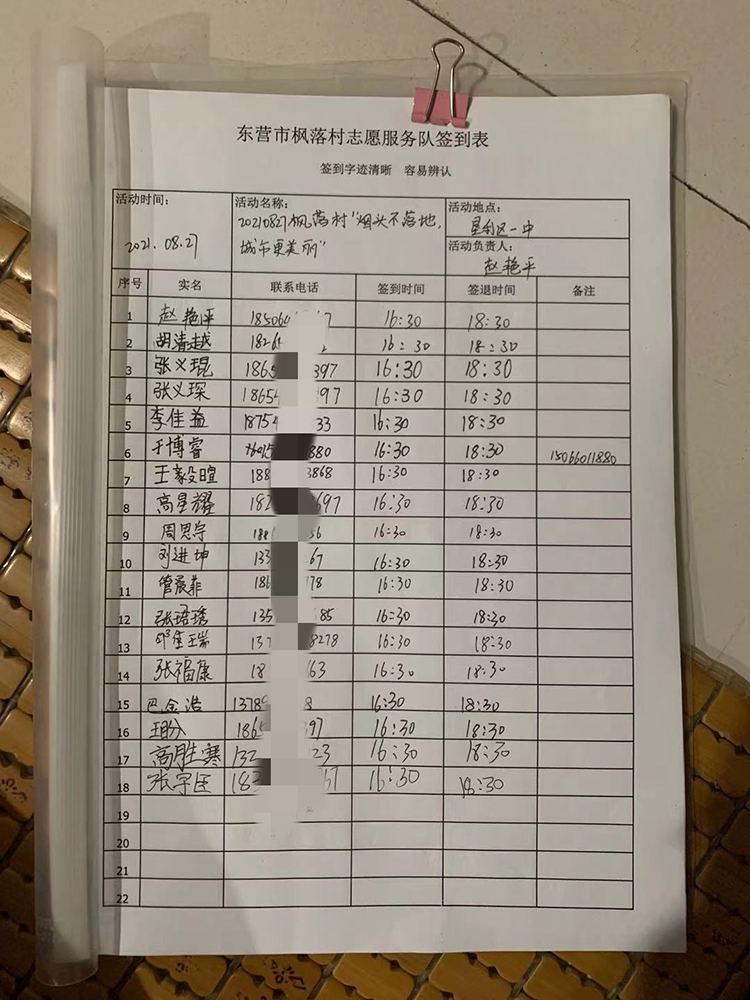 东营市枫落村志愿服务队签到表
签到字迹清晰 容易辨认
活动时间: 2021.08.27
活动名称: 20210827枫落村"烟头不落地,城市更美丽"
活动地点: 垦利区一中
活动负责人: 赵艳平
序号 实名 联系电话 签到时间 签退时间 备注
1 赵艳平 18506 7 16:30 18:30
2 胡清越 1826 2 16:30 18:30
3 张义琨 1865 397 16:30 18:30
4 张义琛 18654 97 16:30 18:30
5 李佳益 18754 33 16:30 18:30
6 于博睿 880 16:30 18:30 15066011880
7 王毅暄 188 3868 16:30 18:30
8 高星耀 182 697 16:30 18:30
9 周思宇 188 56 16:30 18:30
10 刘进坤 133 67 16:30 18:30
11 管晨菲 186 78 16:30 18:30
12 张珺琇 135 85 16:30 18:30
13 137 8278 16:30 18:30
14 张福康 18 63 16:30 18:30
15 巴金浩 13789 8 16:30 18:30
16 1865 397 16:30 18:30
17 高胜寒 132 23 16:30 18:30
18 张宇臣 183 67 16:30 18:30
19
20
21
22